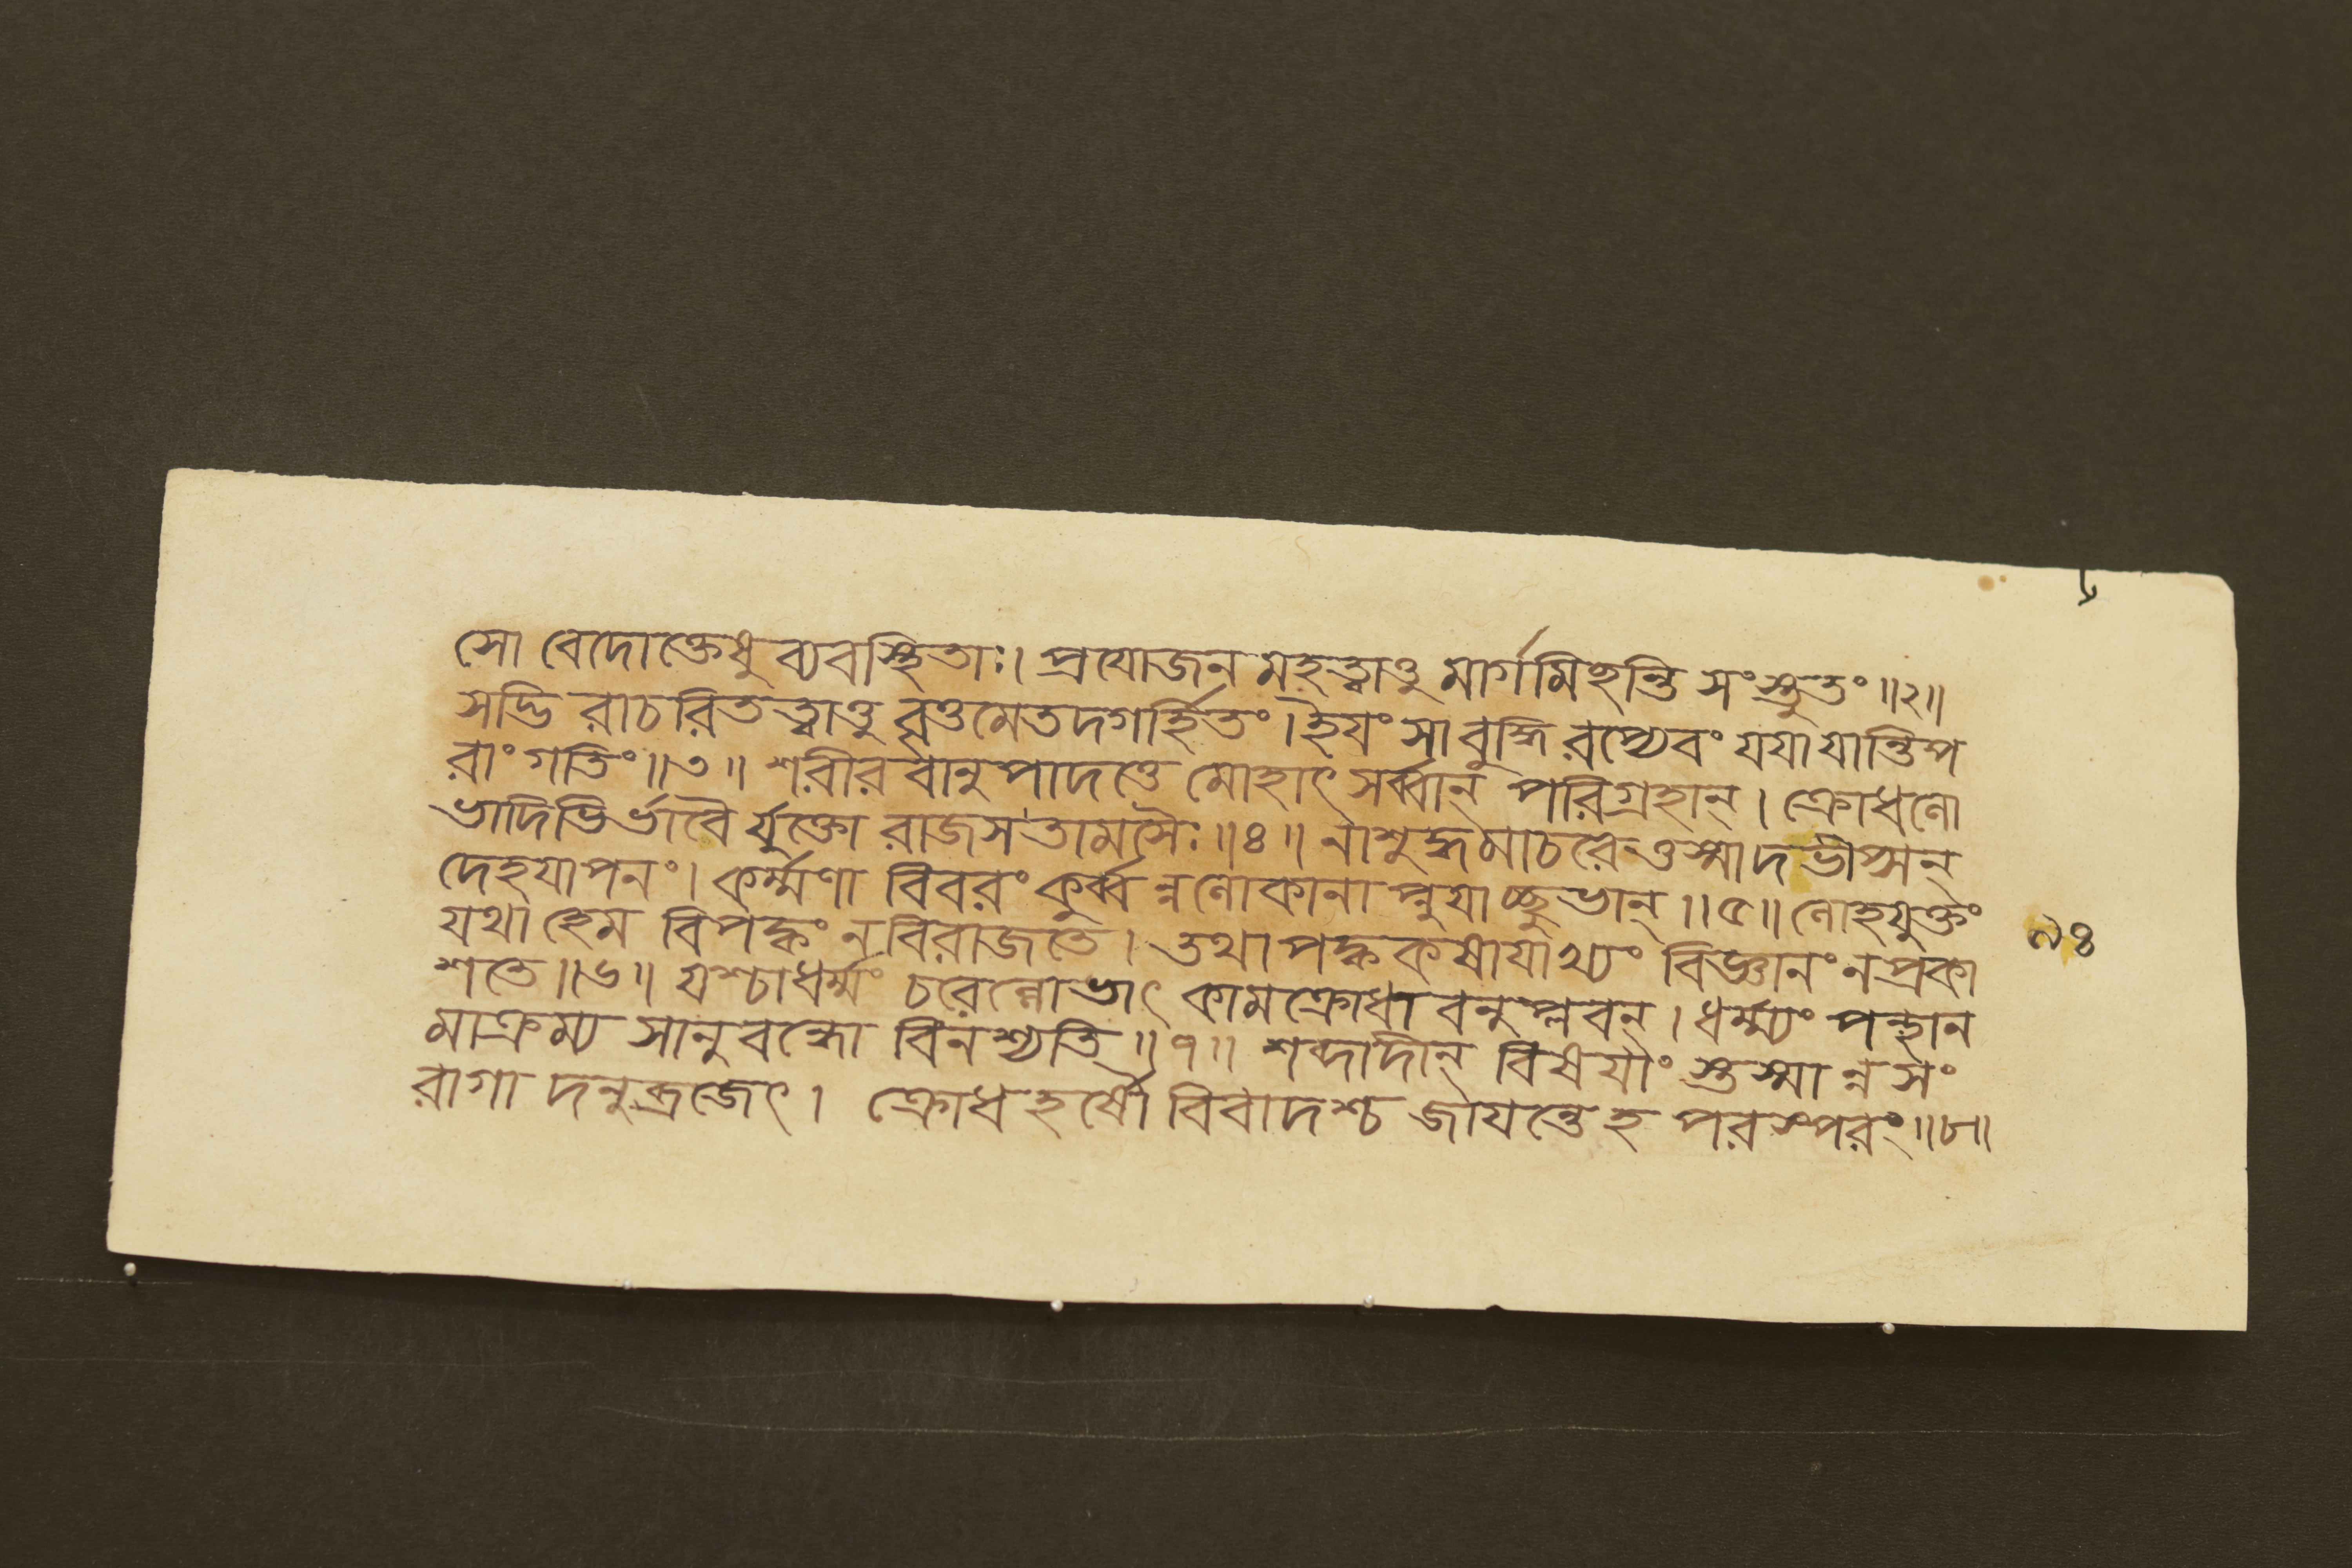 ৬
সো বেদোক্তেধু ব্যবস্থিতাঃ। প্রযোজন মহত্ত্বাত্তু মার্গমিহন্তি সংস্তুতং॥২॥
সদ্ভি রাচরিতত্ত্বাত্তু বৃত্তমেতদগর্হিতং। ইযং সা বুদ্ধি রপ্যেবং যযা যান্তি প
রাং গতিং॥৩॥ শরীর বানু পাদত্তে মোহাৎ সর্ব্বান্ পরিগ্রহান্। ক্রোধলো
ভাদিভির্ভাবৈ র্যুক্তো রাজস তামসৈঃ॥৪॥ নাশুদ্ধমাচরেত্তস্মাদ ভীপ্সন্
দেহযাপনং। কর্ম্মণা বিবরং কুর্ব্ব ন্নলোকানা প্নুযাচ্ছুভান্॥৫॥ লোহযুক্তং
যথা হেম বিপক্কং ন বিরাজতে। তথা পক্ক কষাযাখ্যং বিজ্ঞানং ন প্রকা
৯৪
শতে॥৬॥ যশ্চাধর্ম্মং চরেল্লোভাৎ কামক্রোধা বনুপ্লবন্। ধর্ম্ম্যং পন্থান
মাক্রম্য সানুবন্ধো বিনশ্যতি॥৭॥ শব্দাদীন্ বিষযাং স্তস্মা ন্ন সং
রাগা দনুব্রজেৎ। ক্রোধ হর্ষৌ বিবাদশ্চ জাযন্তেহ পরস্পরং॥৮॥